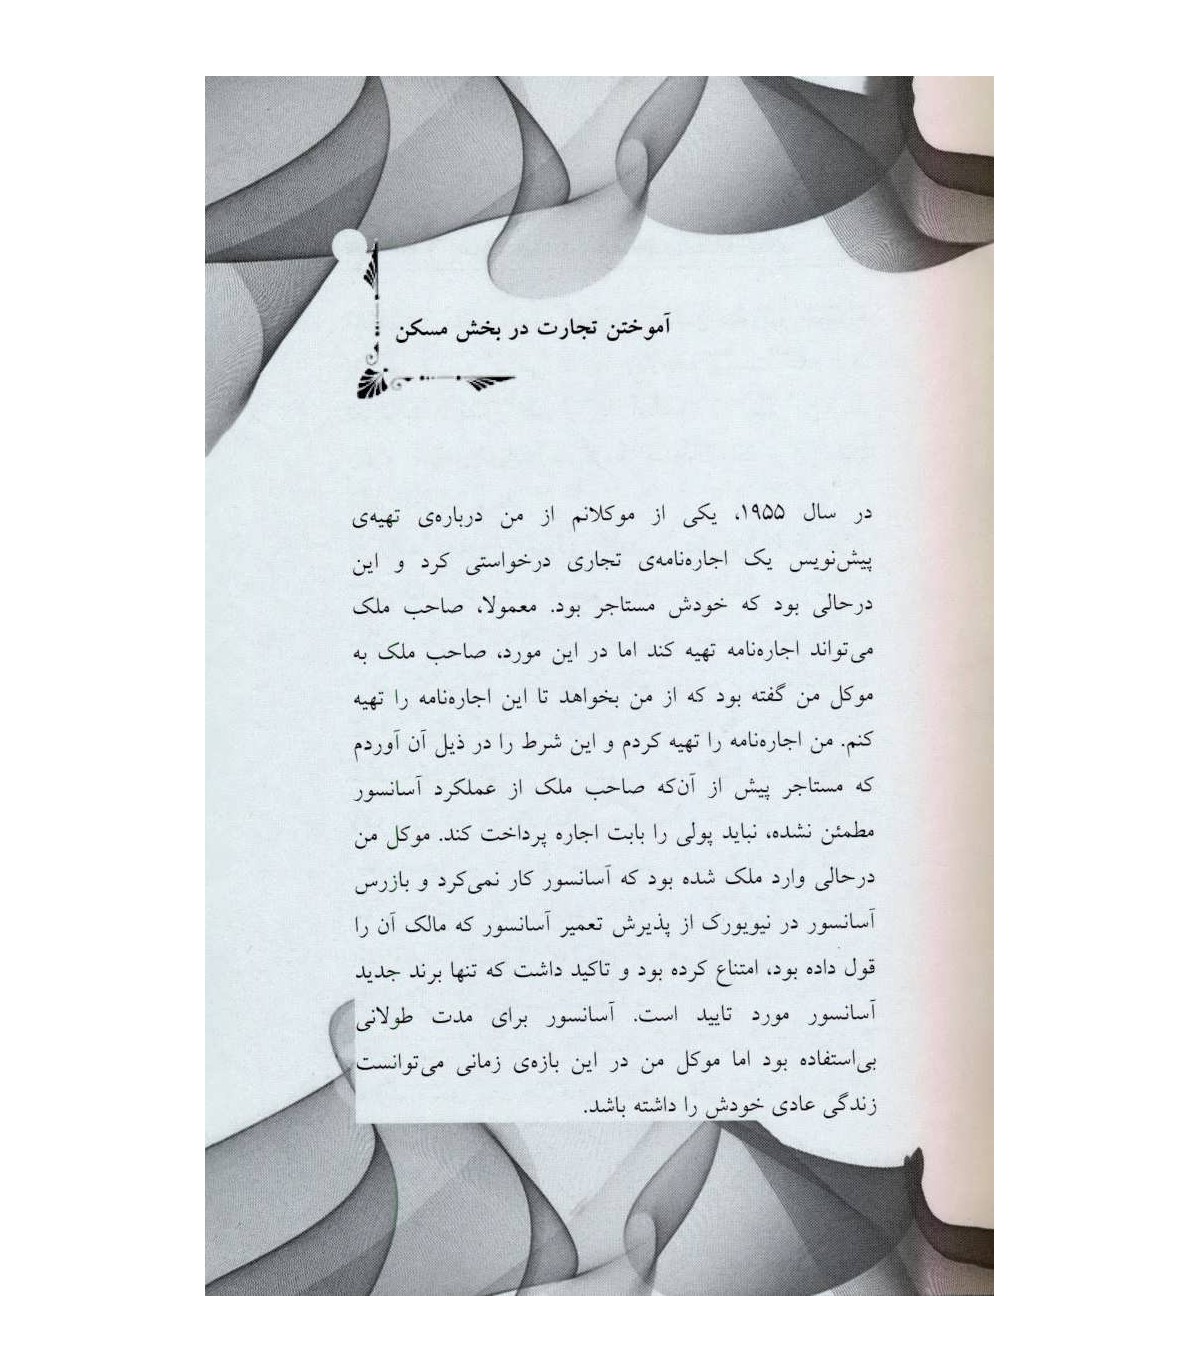 آموختن تجارت در بخش مسکن
در سال ۱۹۵۵، یکی از موکلانم از من درباره‌ی تهیه‌ی
پیش‌نویس یک اجاره‌نامه‌ی تجاری درخواستی کرد و این
درحالی بود که خودش مستاجر بود. معمولا، صاحب ملک
می‌تواند اجاره‌نامه تهیه کند اما در این مورد، صاحب ملک به
موکل من گفته بود که از من بخواهد تا این اجاره‌نامه را تهیه
کنم. من اجاره‌نامه را تهیه کردم و این شرط را در ذیل آن آوردم
که مستاجر پیش از آن‌که صاحب ملک از عملکرد آسانسور
مطمئن نشده، نباید پولی را بابت اجاره پرداخت کند. موکل من
درحالی وارد ملک شده بود که آسانسور کار نمی‌کرد و بازرس
آسانسور در نیویورک از پذیرش تعمیر آسانسور که مالک آن را
قول داده بود، امتناع کرده بود و تاکید داشت که تنها برند جدید
آسانسور مورد تایید است. آسانسور برای مدت طولانی
بی‌استفاده بود اما موکل من در این بازه‌ی زمانی می‌توانست
زندگی عادی خودش را داشته باشد.